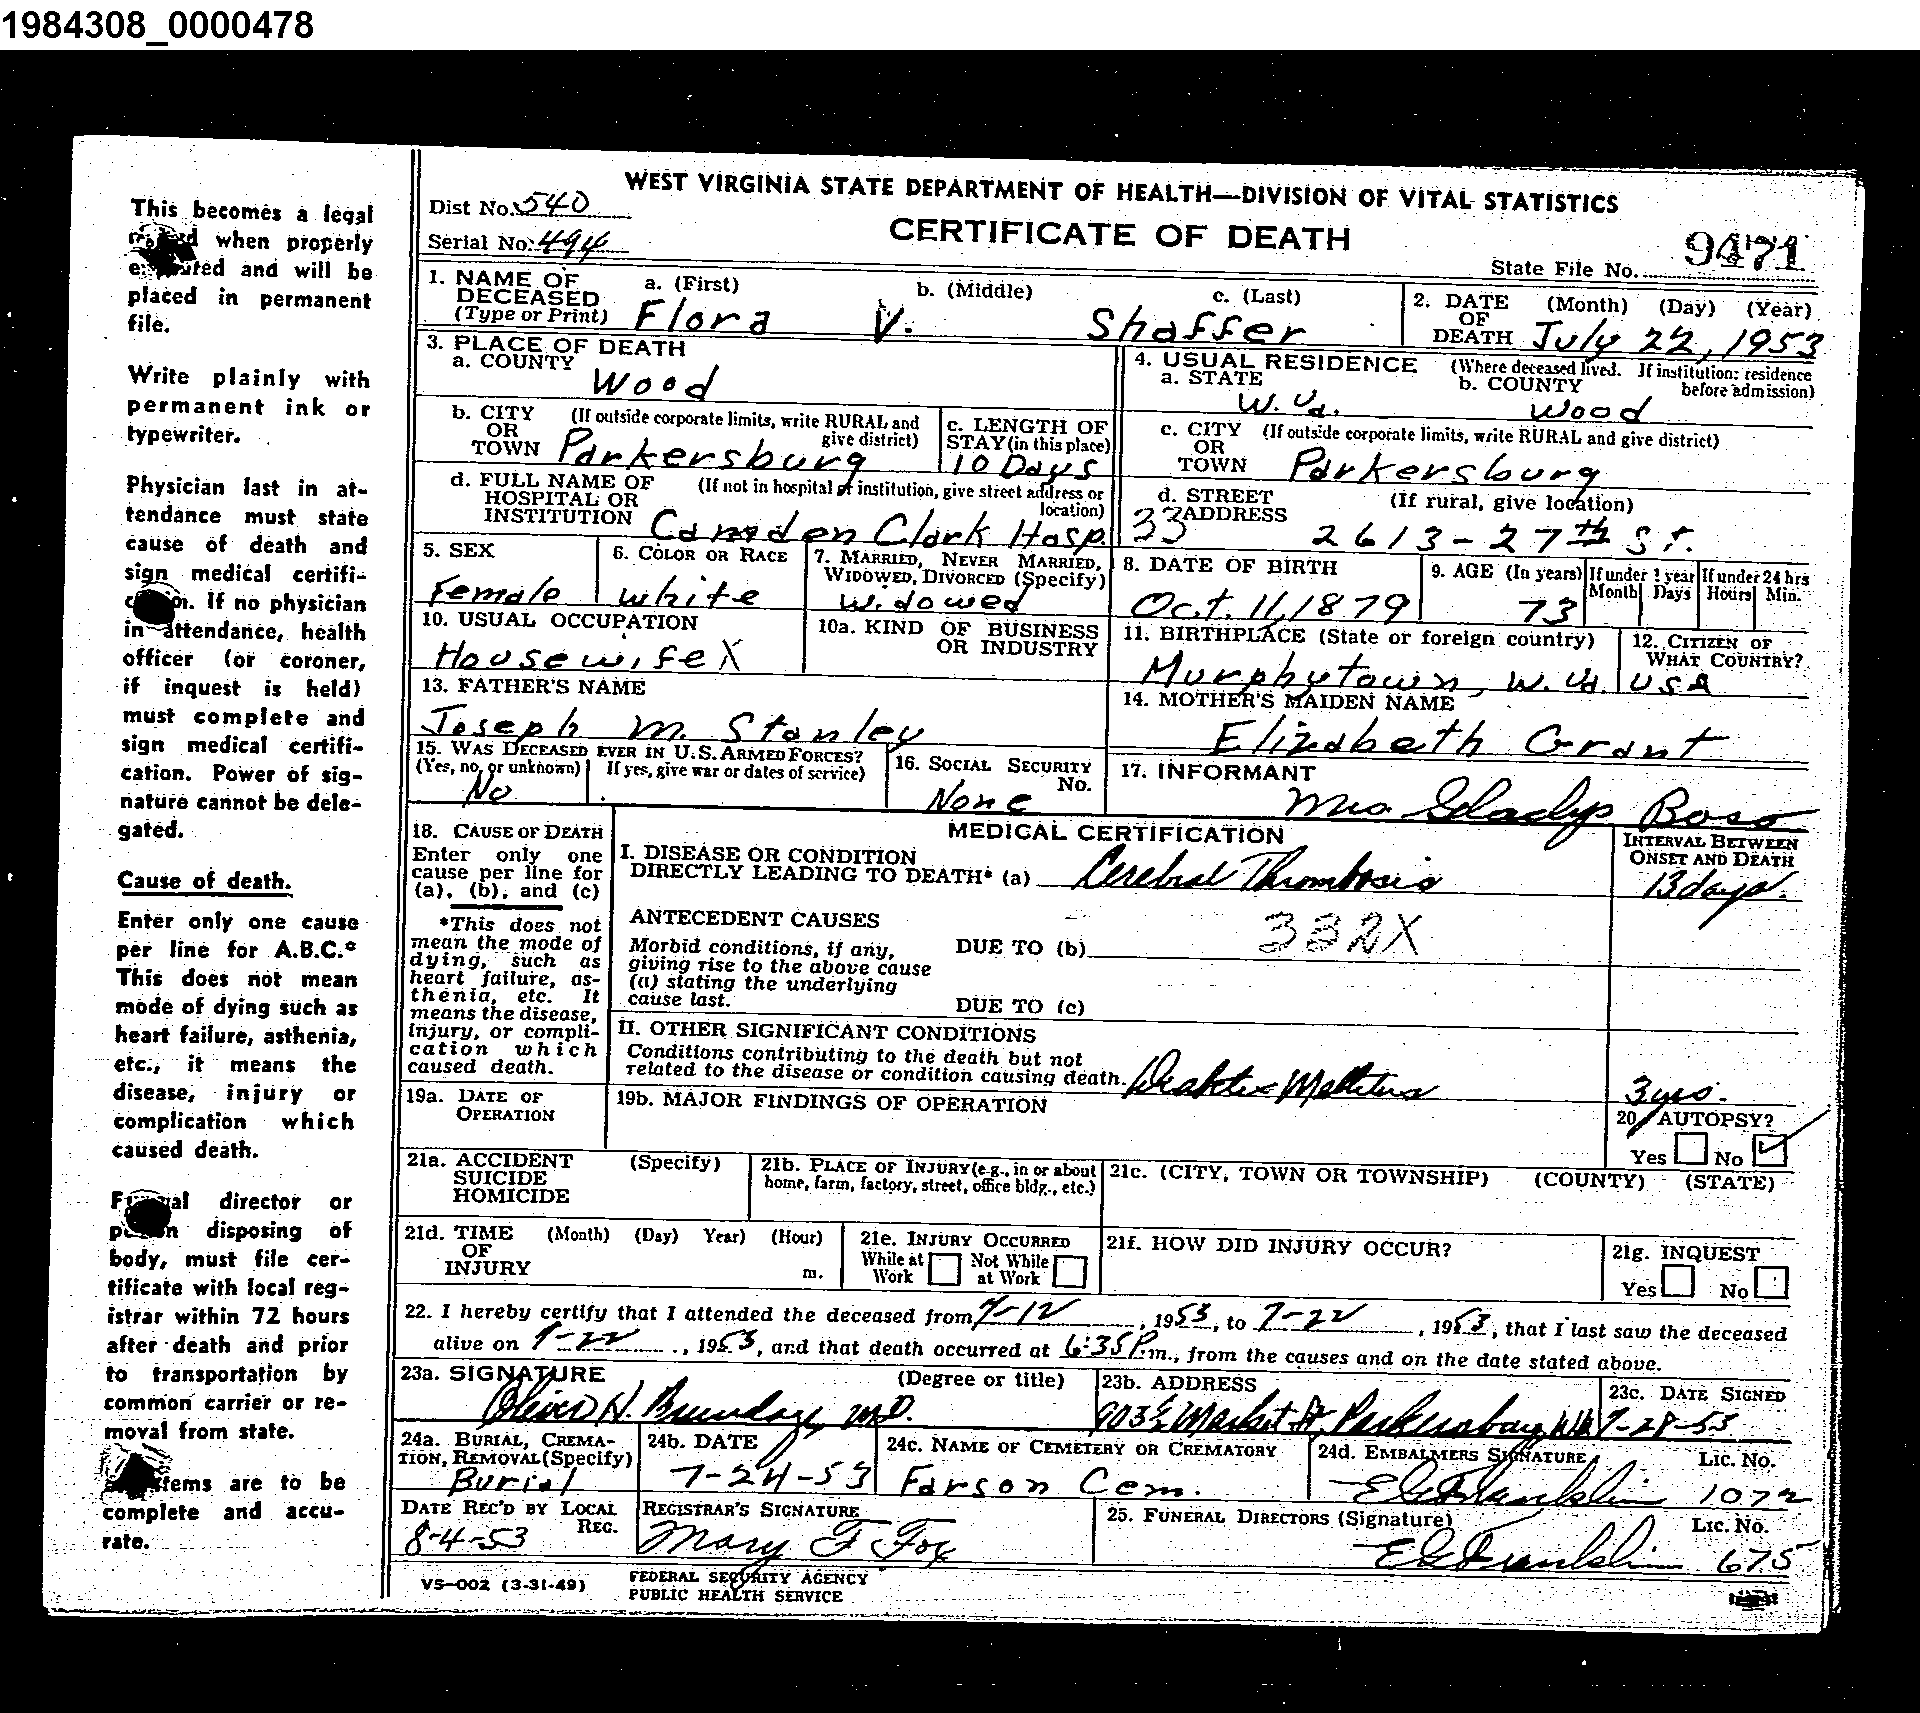 1984308_0000478
This becomes a legal
when properly
and will be
placed in permanent
file.
Write plainly with
permanent ink or
typewriter.
Physician last in at-
tendance must state
cause of death and
sign medical certifi-
If no physician
in attendance, health
officer (or coroner,
if inquest is held)
must complete and
sign medical certifi-
cation. Power of sig-
nature cannot be dele-
gated.
Cause of death.
Enter only one cause
per line for A.B.C.*
This does not mean
mode of dying such as
heart failure, asthenia,
etc., it means the
disease, injury or
complication which
caused death.
director or
disposing of
body, must file cer-
tificate with local reg-
istrar within 72 hours
after death and prior
to transportation by
common carrier or re-
moval from state.
items are to be
complete and accu-
rate.
WEST VIRGINIA STATE DEPARTMENT OF HEALTH—DIVISION OF VITAL STATISTICS
Dist No. 540
CERTIFICATE OF DEATH
Serial No. 494
State File No. 9471
1. NAME OF DECEASED (Type or Print) a. (First) Flora b. (Middle) V. c. (Last) Shaffer
2. DATE OF DEATH (Month) (Day) (Year) July 22, 1953
3. PLACE OF DEATH
a. COUNTY Wood
4. USUAL RESIDENCE (Where deceased lived. If institution: residence before admission)
a. STATE W. Va. b. COUNTY Wood
b. CITY OR TOWN (If outside corporate limits, write RURAL and give district) Parkersburg
c. LENGTH OF STAY (in this place) 10 Days
c. CITY OR TOWN (If outside corporate limits, write RURAL and give district) Parkersburg
d. FULL NAME OF HOSPITAL OR INSTITUTION (If not in hospital or institution, give street address or location) Camden Clark Hosp.
d. STREET ADDRESS (If rural, give location) 33 2613-27th St.
5. SEX Female
6. COLOR OR RACE White
7. MARRIED, NEVER MARRIED, WIDOWED, DIVORCED (Specify) Widowed
8. DATE OF BIRTH Oct. 11, 1879
9. AGE (In years) 73 If under 1 year Month Days If under 24 hrs Hours Min.
10. USUAL OCCUPATION Housewife X
10a. KIND OF BUSINESS OR INDUSTRY
11. BIRTHPLACE (State or foreign country) Murphytown, W. Va.
12. CITIZEN OF WHAT COUNTRY? USA
13. FATHER'S NAME Joseph M. Stanley
14. MOTHER'S MAIDEN NAME Elizabeth Grant
15. WAS DECEASED EVER IN U.S. ARMED FORCES? (Yes, no, or unknown) No If yes, give war or dates of service)
16. SOCIAL SECURITY No. None
17. INFORMANT Mrs Gladys Boso
18. CAUSE OF DEATH
Enter only one cause per line for (a), (b), and (c)
*This does not mean the mode of dying, such as heart failure, asthenia, etc. It means the disease, injury, or complication which caused death.
MEDICAL CERTIFICATION
INTERVAL BETWEEN ONSET AND DEATH
I. DISEASE OR CONDITION DIRECTLY LEADING TO DEATH* (a) Cerebral Thrombosis 13 days.
ANTECEDENT CAUSES
Morbid conditions, if any, giving rise to the above cause (a) stating the underlying cause last.
DUE TO (b) 332X
DUE TO (c)
II. OTHER SIGNIFICANT CONDITIONS
Conditions contributing to the death but not related to the disease or condition causing death. Mellitus 3 yrs.
19a. DATE OF OPERATION
19b. MAJOR FINDINGS OF OPERATION
20. AUTOPSY? Yes No ✓
21a. ACCIDENT SUICIDE HOMICIDE (Specify)
21b. PLACE OF INJURY (e.g., in or about home, farm, factory, street, office bldg., etc.)
21c. (CITY, TOWN OR TOWNSHIP) (COUNTY) (STATE)
21d. TIME OF INJURY (Month) (Day) Year) (Hour) m.
21e. INJURY OCCURRED While at Work Not While at Work
21f. HOW DID INJURY OCCUR?
21g. INQUEST Yes No
22. I hereby certify that I attended the deceased from 7-12, 1953, to 7-22, 1953, that I last saw the deceased
alive on 7-22, 1953, and that death occurred at 6:35 P.m., from the causes and on the date stated above.
23a. SIGNATURE (Degree or title) Oliver H. Brundage M.D.
23b. ADDRESS 903½ Market St. Parkersburg W.Va
23c. DATE SIGNED 7-28-53
24a. BURIAL, CREMATION, REMOVAL (Specify) Burial
24b. DATE 7-24-53
24c. NAME OF CEMETERY OR CREMATORY Farson Cem.
24d. EMBALMERS SIGNATURE E G Franklin Lic. No. 1072
DATE REC'D BY LOCAL REG. 8-4-53
REGISTRAR'S SIGNATURE Mary F Fox
25. FUNERAL DIRECTORS (Signature) E G Franklin Lic. No. 675
VS-002 (3-31-49)
FEDERAL SECURITY AGENCY
PUBLIC HEALTH SERVICE